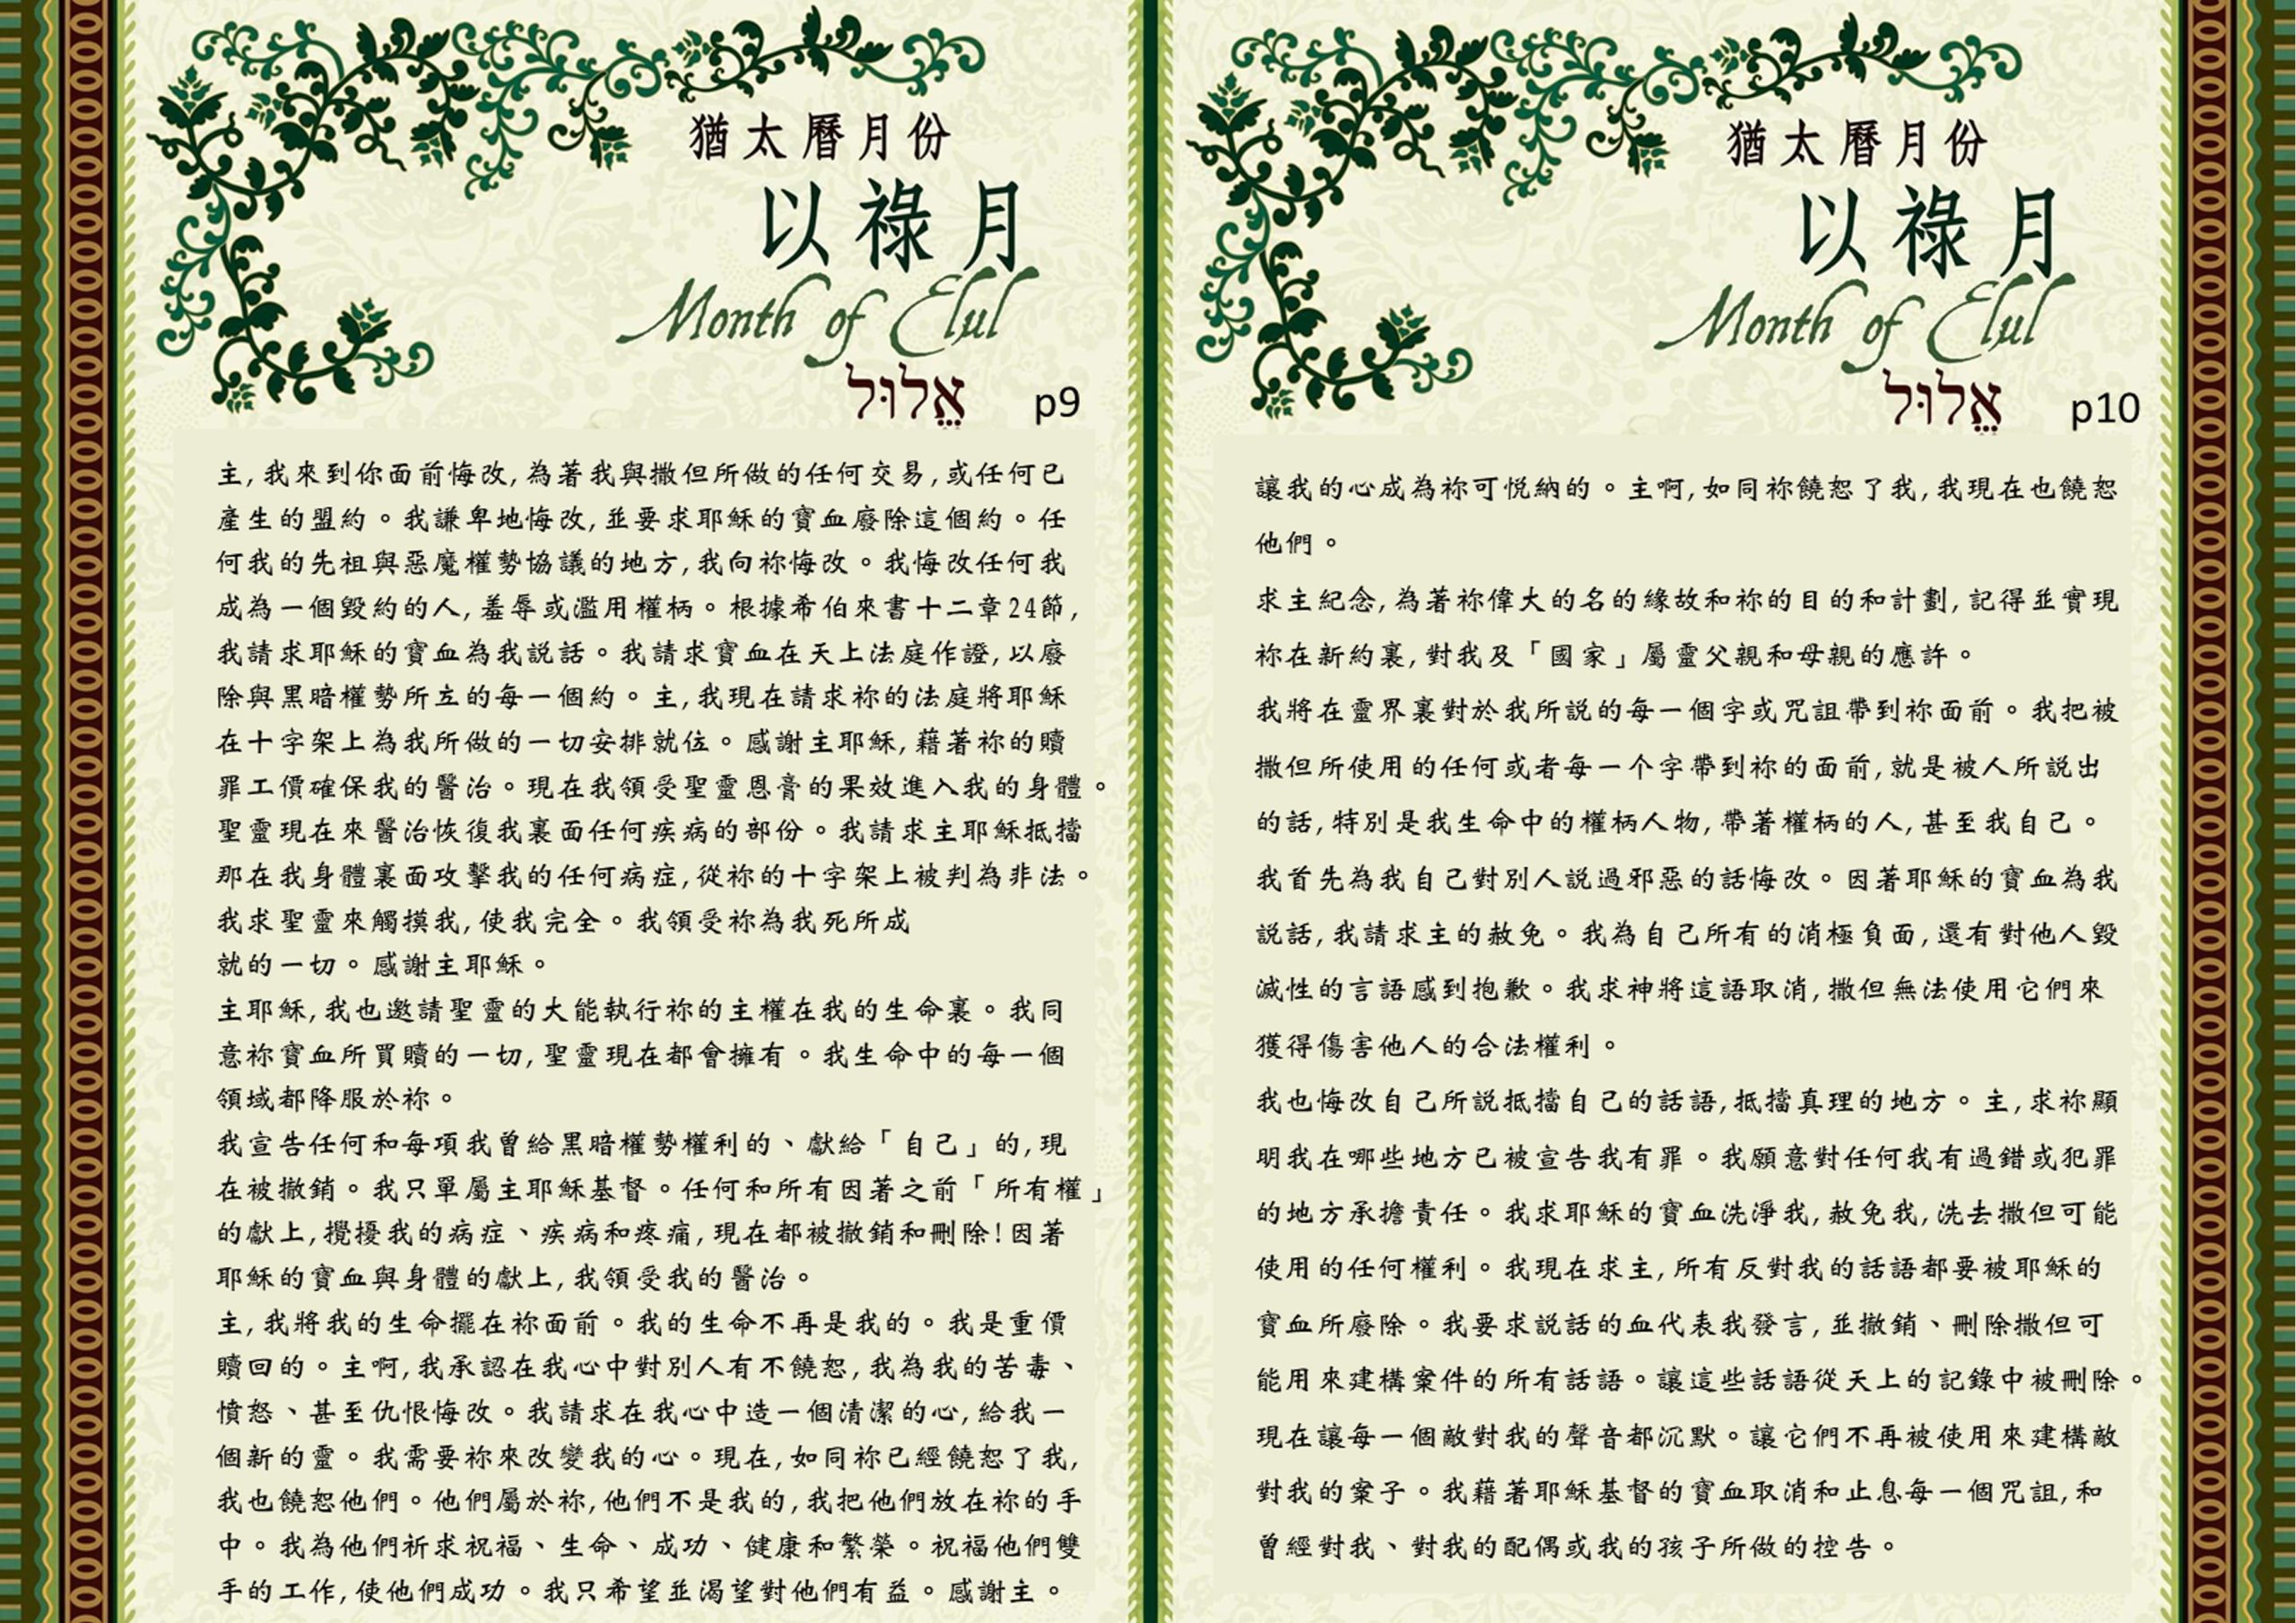 猶太曆月份
以祿月
Month of Elul
אֱלוּל
p9
主,我來到你面前悔改,為著我與撒但所做的任何交易,或任何已
產生的盟約。我謙卑地悔改,並要求耶穌的寶血廢除這個約。任
何我的先祖與惡魔權勢協議的地方,我向祢悔改。我悔改任何我
成為一個毀約的人,羞辱或濫用權柄。根據希伯來書十二章24節,
我請求耶穌的寶血為我說話。我請求寶血在天上法庭作證,以廢
除與黑暗權勢所立的每一個約。主,我現在請求祢的法庭將耶穌
在十字架上為我所做的一切安排就位。感謝主耶穌,藉著祢的贖
罪工價確保我的醫治。現在我領受聖靈恩膏的果效進入我的身體。
聖靈現在來醫治恢復我裏面任何疾病的部份。我請求主耶穌抵擋
那在我身體裏面攻擊我的任何病症,從祢的十字架上被判為非法。
我求聖靈來觸摸我,使我完全。我領受祢為我死所成
就的一切。感謝主耶穌。
主耶穌,我也邀請聖靈的大能執行祢的主權在我的生命裏。我同
意祢寶血所買贖的一切,聖靈現在都會擁有。我生命中的每一個
領域都降服於祢。
我宣告任何和每項我曾給黑暗權勢權利的、獻給「自己」的,現
在被撤銷。我只單屬主耶穌基督。任何和所有因著之前「所有權」
的獻上,攪擾我的病症、疾病和疼痛,現在都被撤銷和刪除!因著
耶穌的寶血與身體的獻上,我領受我的醫治。
主,我將我的生命擺在祢面前。我的生命不再是我的。我是重價
贖回的。主啊,我承認在我心中對別人有不饒恕,我為我的苦毒、
憤怒、甚至仇恨悔改。我請求在我心中造一個清潔的心,給我一
個新的靈。我需要祢來改變我的心。現在,如同祢已經饒恕了我,
我也饒恕他們。他們屬於祢,他們不是我的,我把他們放在祢的手
中。我為他們祈求祝福、生命、成功、健康和繁榮。祝福他們雙
手的工作,使他們成功。我只希望並渴望對他們有益。感謝主。
猶太曆月份
以祿月
Month of Elul
אֱלוּל
p10
讓我的心成為祢可悅納的。主啊,如同祢饒恕了我,我現在也饒恕
他們。
求主紀念,為著祢偉大的名的緣故和祢的目的和計劃,記得並實現
祢在新約裏,對我及「國家」屬靈父親和母親的應許。
我將在靈界裏對於我所說的每一個字或咒詛帶到祢面前。我把被
撒但所使用的任何或者每一个字帶到祢的面前,就是被人所說出
的話,特別是我生命中的權柄人物,帶著權柄的人,甚至我自己。
我首先為我自己對別人說過邪惡的話悔改。因著耶穌的寶血為我
說話,我請求主的赦免。我為自己所有的消極負面,還有對他人毀
滅性的言語感到抱歉。我求神將這語取消,撒但無法使用它們來
獲得傷害他人的合法權利。
我也悔改自己所說抵擋自己的話語,抵擋真理的地方。主,求祢顯
明我在哪些地方已被宣告我有罪。我願意對任何我有過錯或犯罪
的地方承擔責任。我求耶穌的寶血洗淨我,赦免我,洗去撒但可能
使用的任何權利。我現在求主,所有反對我的話語都要被耶穌的
寶血所廢除。我要求說話的血代表我發言,並撤銷、刪除撒但可
能用來建構案件的所有話語。讓這些話語從天上的記錄中被刪除。
現在讓每一個敵對我的聲音都沉默。讓它們不再被使用來建構敵
對我的案子。我藉著耶穌基督的寶血取消和止息每一個咒詛,和
曾經對我、對我的配偶或我的孩子所做的控告。